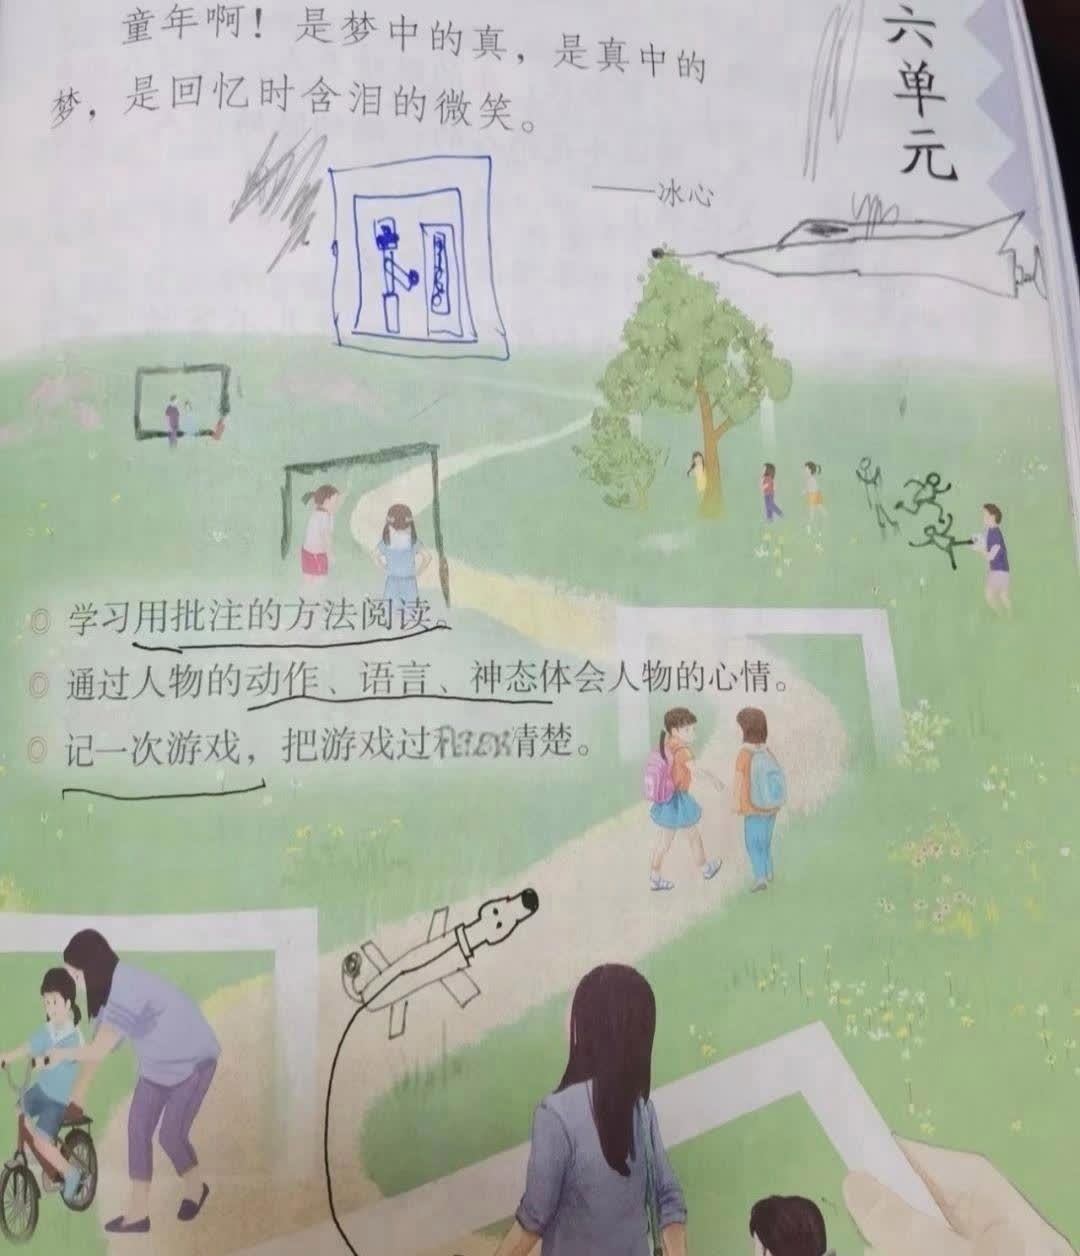 童年啊！是梦中的真，是真中的
梦，是回忆时含泪的微笑。
——冰心
六单元
学习用批注的方法阅读。
通过人物的动作、语言、神态体会人物的心情。
记一次游戏，把游戏过清楚。